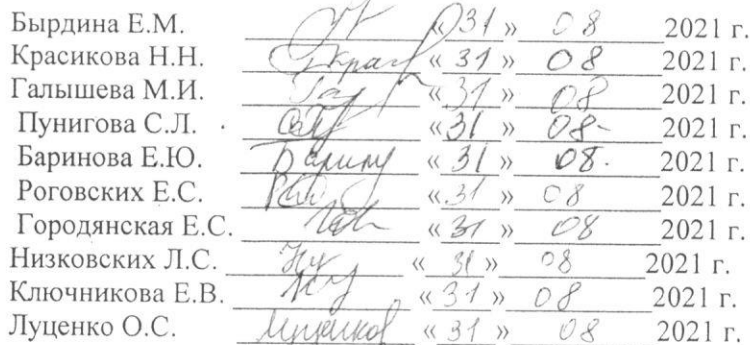 Бырдина Е.М. «31» 08 2021 г.
Красикова Н.Н. «31» 08 2021 г.
Галышева М.И. «31» 08 2021 г.
Пунигова С.Л. «31» 08 2021 г.
Баринова Е.Ю. «31» 08. 2021 г.
Роговских Е.С. «31» 08 2021 г.
Городянская Е.С. «31» 08 2021 г.
Низковских Л.С. «31» 08 2021 г.
Ключникова Е.В. «31» 08 2021 г.
Луценко О.С. «31» 08 2021 г.